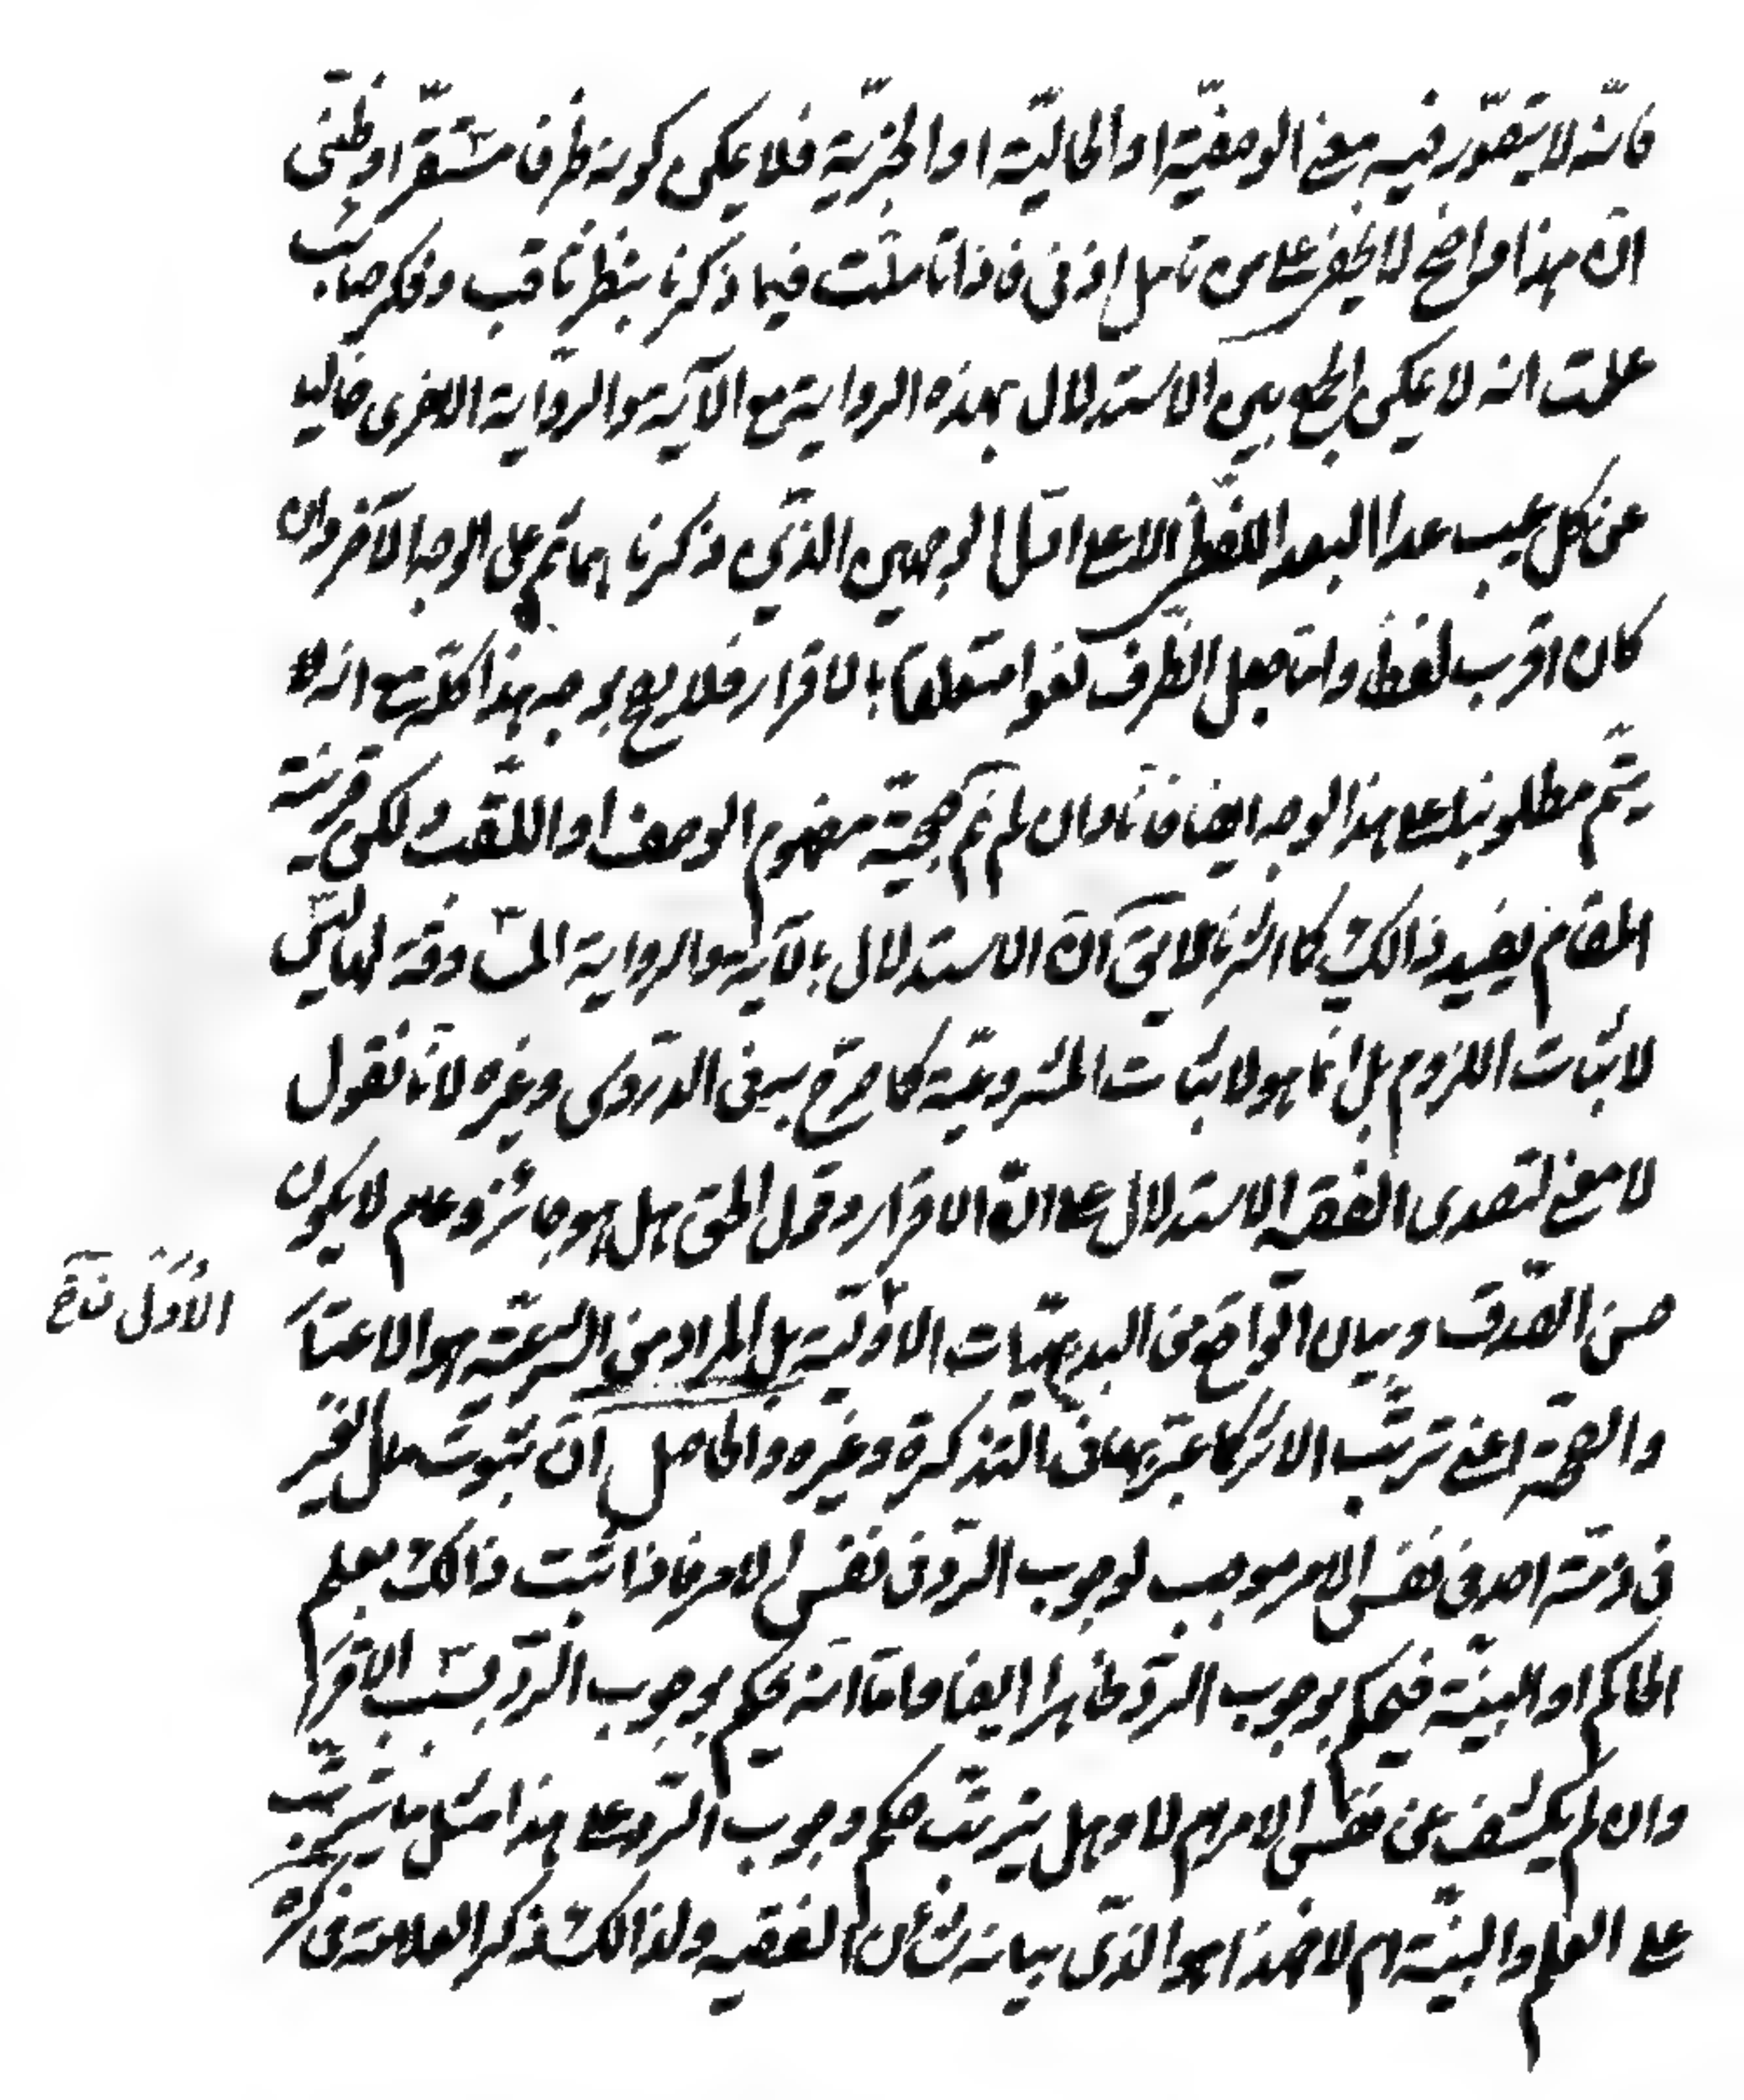 فانّه لا يتصوّر فيه معنى الوصفيّة او الحاليّة او الخبريّة فلا يمكن كونه ظرفا مستقرّا وظنّى
انّ هذا واضح لا يخفى على من تامل ادنى فاذا تاملت فيما ذكرنا بنظر ثاقب وفكر صائب
علمت انه لا يمكن الجمع بين الاستدلال بهذه الرواية مع الآية والرّواية الاخرى خاليا
عن كل عيب عدا البعد اللفظى الا على اوّل الوجهين الذّين ذكرنا بما تم على الوجه الآخر وان
كان اقرب لفظا وامّا جعل الظّرف لغوا متعلقا بالاقرار فلا يصح بوجه هذا كلّه مع انه لا
يتّم مطلوبنا على هذا الوجه ايضا فانّا وان لم نقل بحجيّة مفهوم الوصف او اللّقب ولكن قرينة
المقام يفيد ذالك كما اشرنا لا يق انّ الاستدلال بالآية والرواية المسّاوقة لها ليس
لاثبات اللزوم بل انّما هو لاثبات المشروعيّة كما صرّح به فى الدّروس وغيره لانّا نقول
لا معنى لتصدى الفقيه الاستدلال على انّ الاقرار وقول الحق هل هو جائز وعلم لا يكون
حسن الصّدق وبيان الواقع من البديهيّات الاوّليّة بل المراد من الشرعيّة هو الاعتبا
والصحّة اعنى ترتّب الاثر كما عبّر بها فى التذكرة وغيره والحاصل انّ ثبوت مال الغير
فى ذمّة احد فى نفس الامر موجب لوجوب الردّ فى نفس الامر فاذا ثبت ذالك بعلم
الحاكم او البيّنة فيحكم بوجوب الردّ ظاهرا ايضا واما انّه يحكم بوجوب الردّ بسبب الاقرا
وان لم يكشف عن نفس الامر ام لا وهل يترتب حكم وجوب الردّ على هذا مثل ما يترتّب
على العلم والبيّنة ام لا فهذا هو الذّى بيانه شأن الفقيه ولذالك ذكر العلامة فى كره